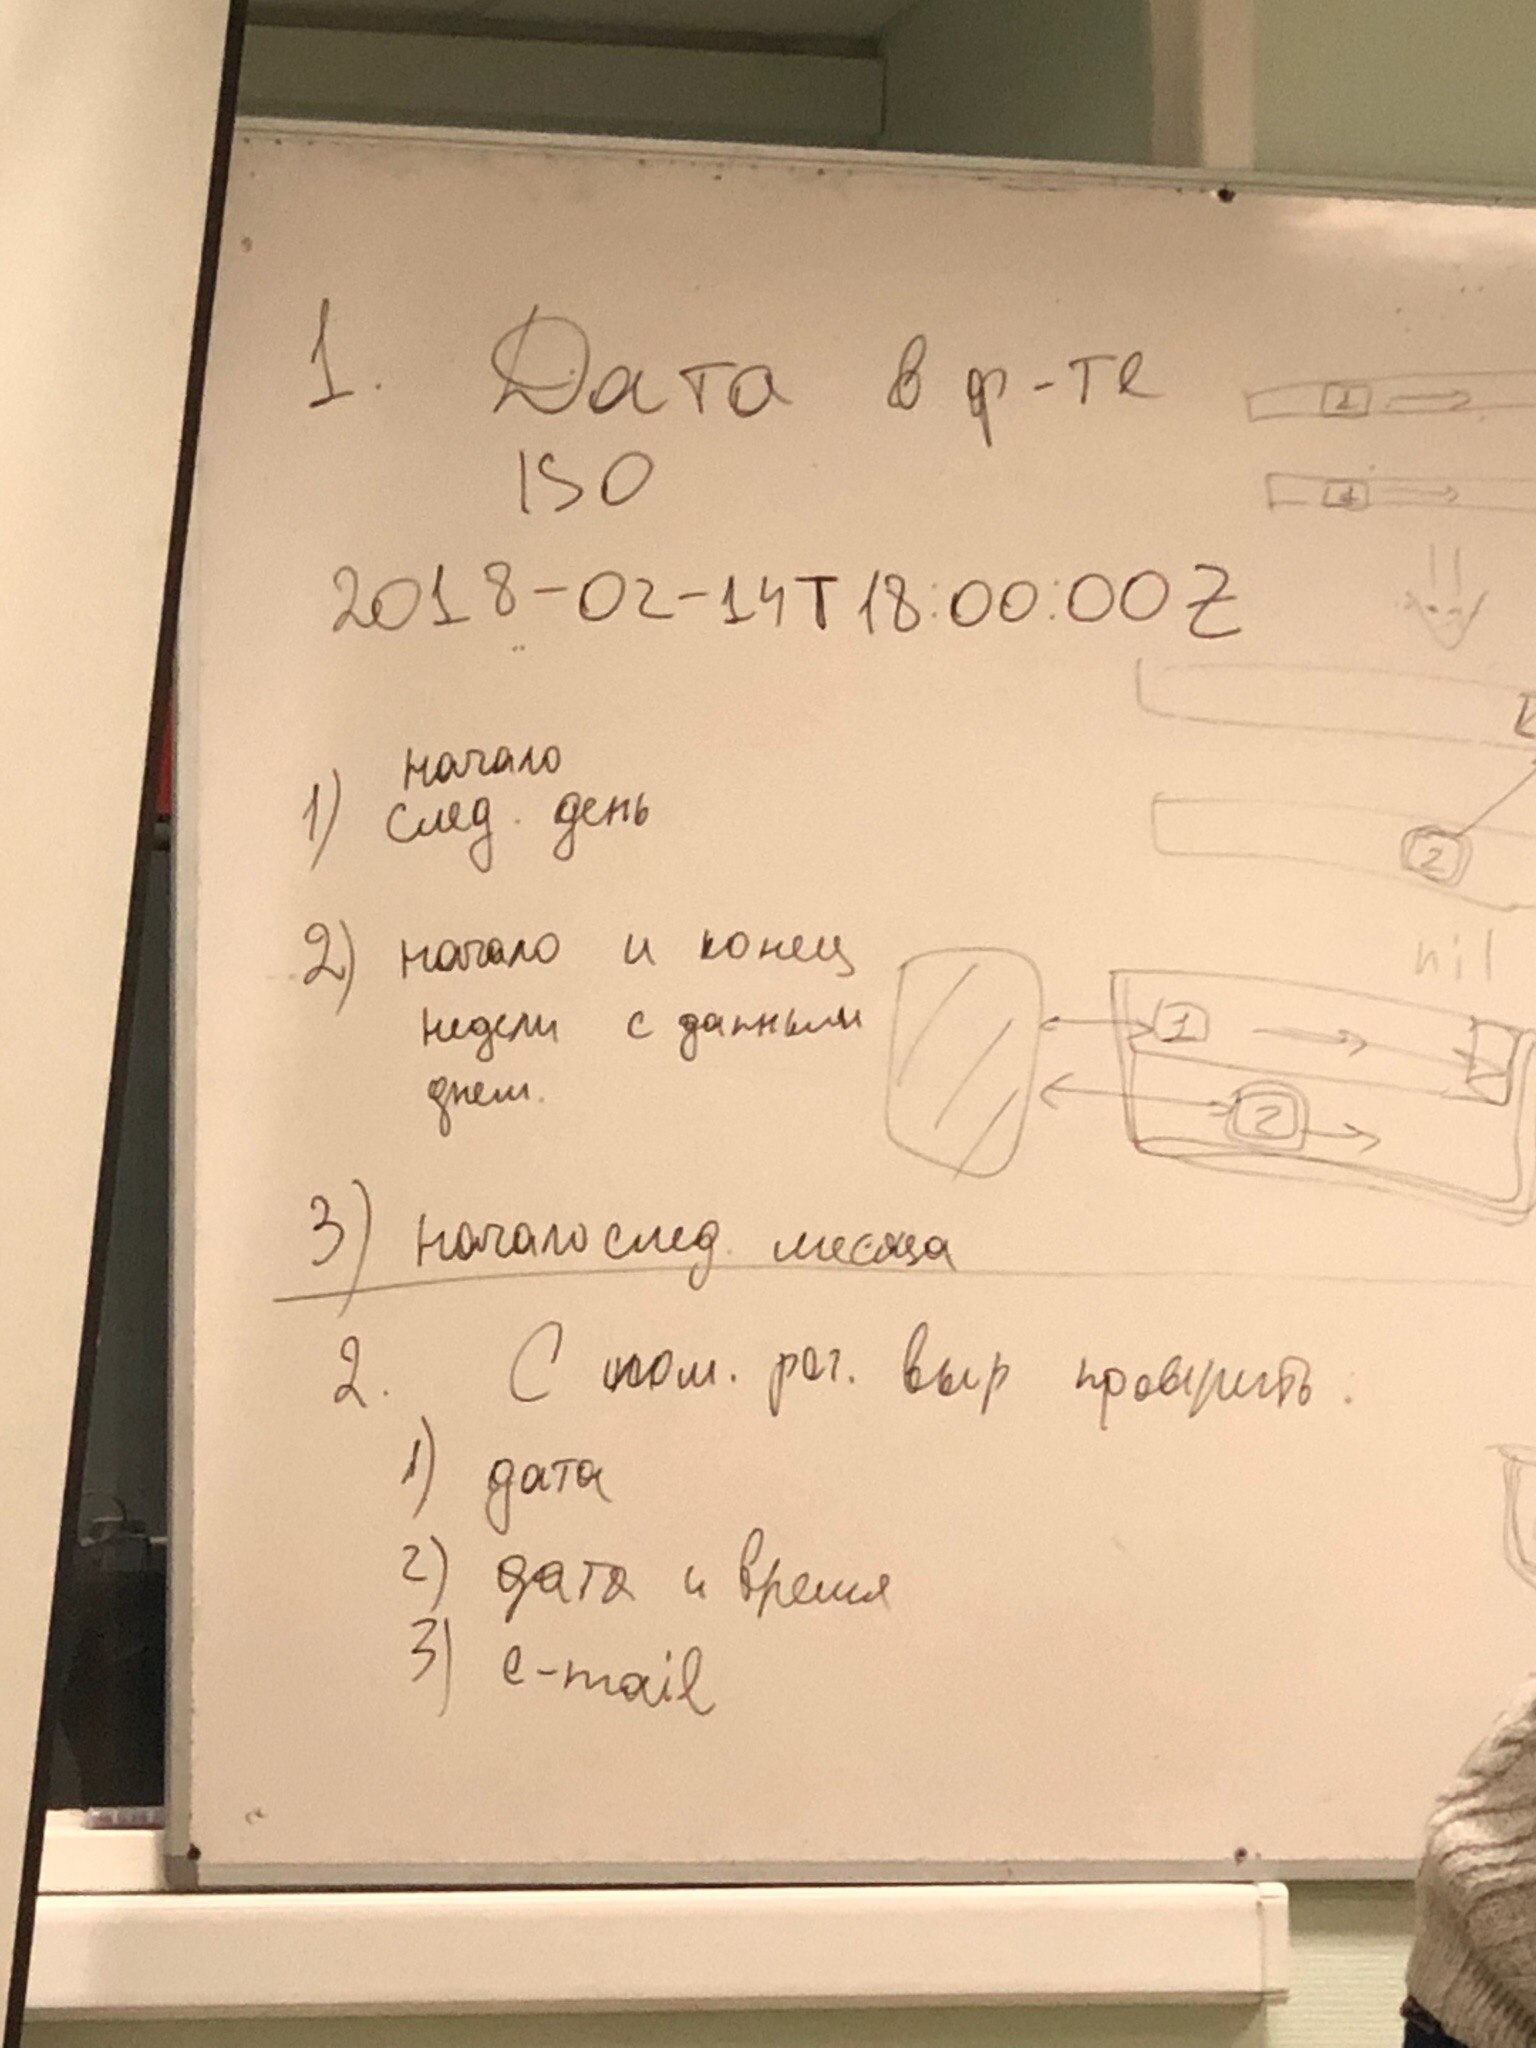 1. Дата в ф-те
ISO
2018-02-14T18:00:00Z
начало
1) след. день
2) начало и конец
недели с данным
днем.
3) начало след. месяца
2. С пом. рег. выр проверить.
1) дата
2) дата и время
3) e-mail
1
2
nil
1
2